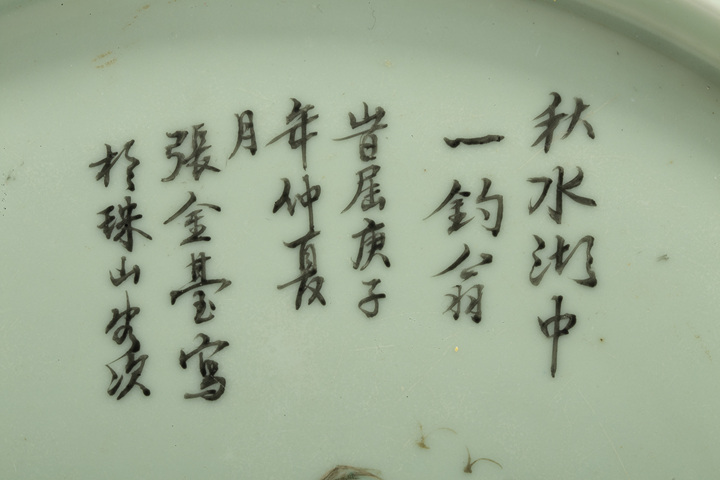 秋水湖中
一釣翁
旹屆庚子
年仲夏
月
張金臺寫
於珠山客次